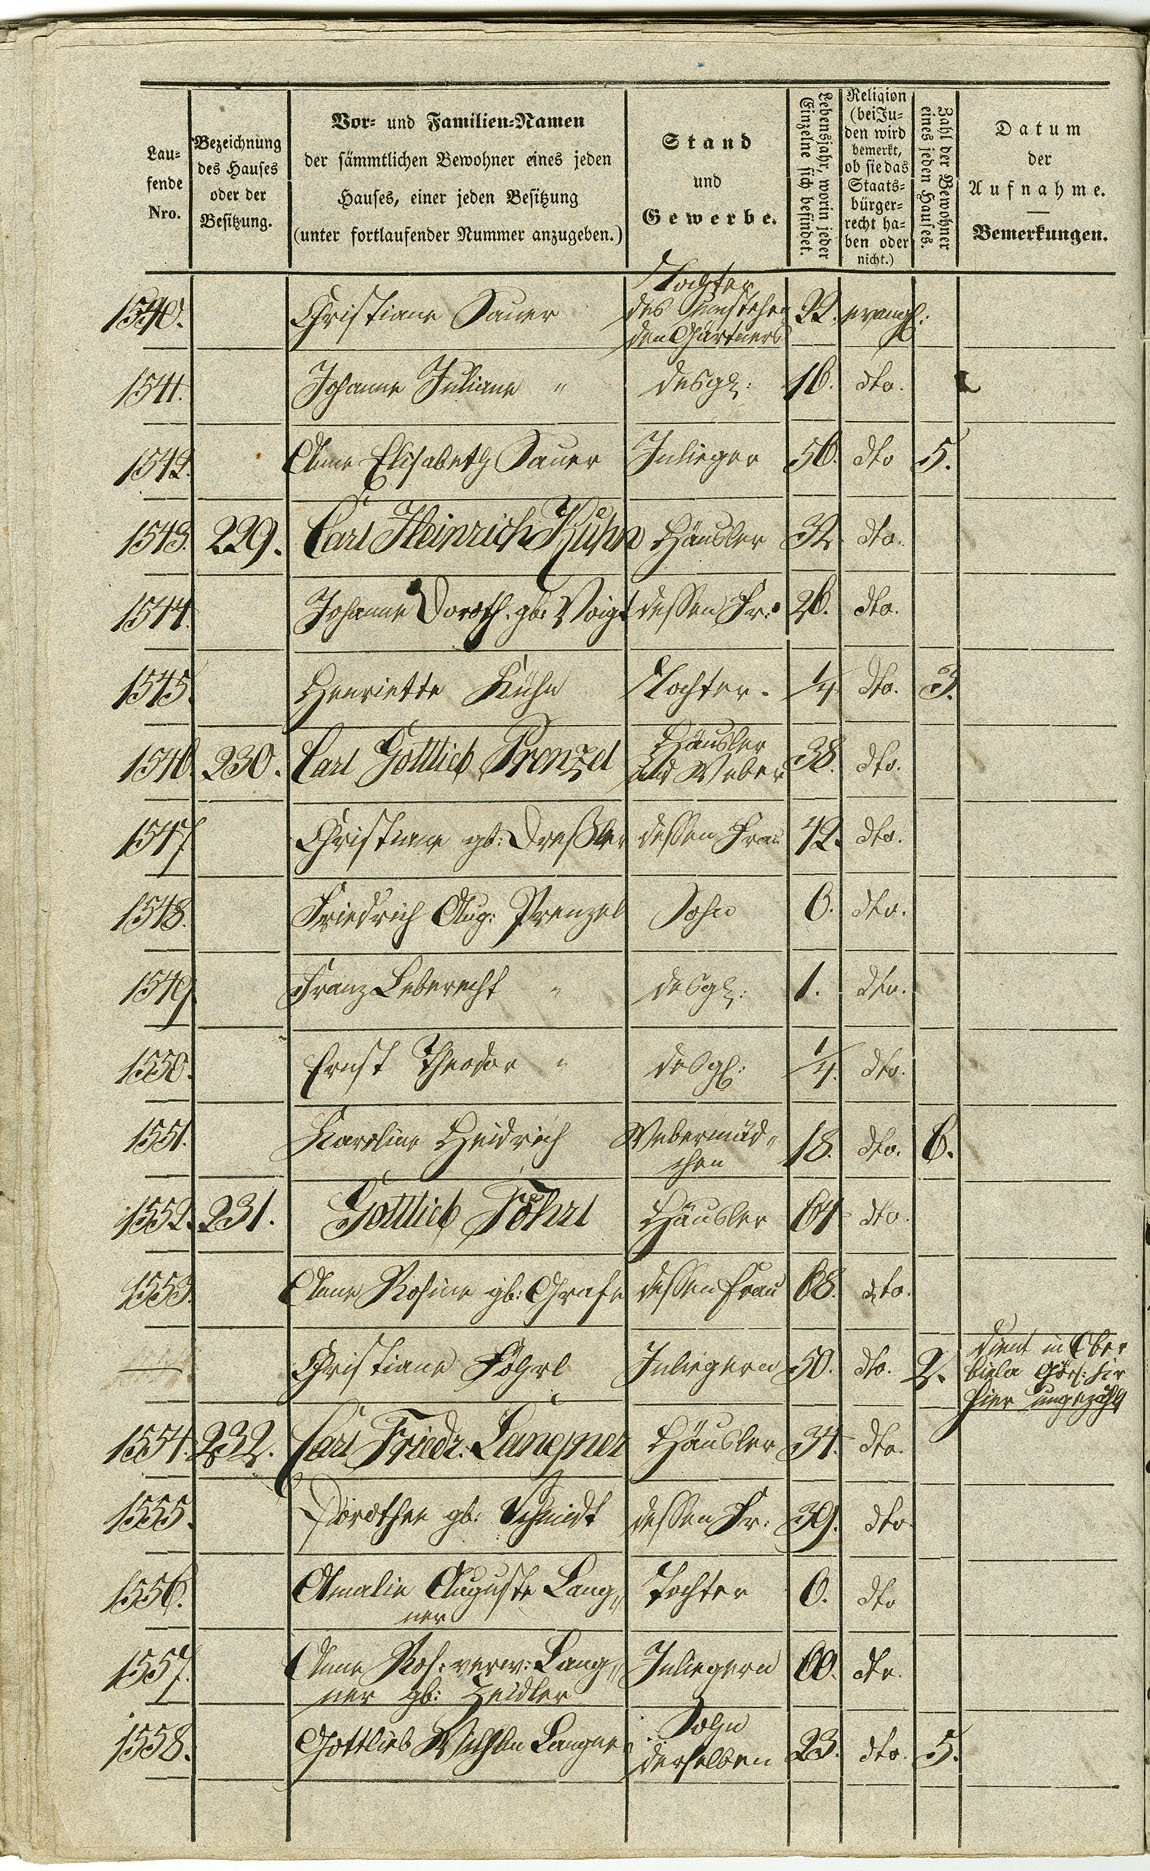 Lau-
fende
Nro.
Bezeichnung
des Hauses
oder der
Besitzung.
Vor- und Familien-Namen
der sämmtlichen Bewohner eines jeden
Hauses, einer jeden Besitzung
(unter fortlaufender Nummer anzugeben.)
Stand
und
Gewerbe.
Lebensjahr, worin jeder
Einzelne sich befindet.
Religion
(bei Ju-
den wird
bemerkt,
ob sie das
Staats-
bürger-
recht ha-
ben oder
nicht.)
Zahl der Bewohner
eines jeden Hauses.
Datum
der
Aufnahme.
Bemerkungen.
Tochter
des Umstehen
1540. Christiane Sauer 22. evangl:
den Gärtners
1541. Johanne Juliane " desgl: 16. dto.
1542. Anne Elisabeth Sauer Inlieger 56. dto 5.
1543. 229. Carl Heinrich Kühn Häusler 32. dto.
1544. Johanne Doroth. gb: Voigt dessen Fr: 26. dto.
1545. Henriette Kühn Tochter. 1/4 dto. 3.
Häusler
1546. 230. Carl Gottlieb Prenzel 38. dto.
und Weber
1547 Christiane gb: Dreßler dessen Frau 42. dto.
1548. Friedrich Aug: Prenzel Sohn 6. dto.
1549 Franz Leberecht " desgl: 1. dto.
1550. Ernst Theodor " desgl: 1/4. dto.
1551. Karoline Heidrich Webermäd- 18. dto. 6.
chen
1552. 231. Gottlieb Föhrl Häusler 64 dto.
1553. Anne Rosine gb: Grafe dessen Frau 68. dto.
dient in Ober
Christiane Föhrl Inliegern 50. dto. 2. biela
hier ungezählt
1554. 232. Carl Friedr. Langner Häusler 34. dto.
1555. Dorothee gb: Schmidt dessen Fr: 39. dto
1556. Amalie Auguste Lang- Tochter 6. dto
ner
1557. Anne Ros: verw: Lang- Inliegern 60. dto.
ner gb: Heidler
Sohn
1558. Gottlieb Wilhlm Langner 23. dto. 5.
derselben